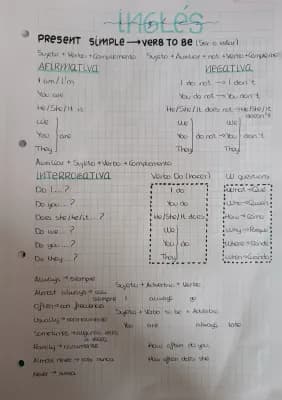 INGLÉS
PRESENT SIMPLE → VERB TO BE (Ser o estar)
Sujeto + Verbo + Complemento
Sujeto + Auxiliar + not + Verbo + Complemento
AFIRMATIVA
NEGATIVA
I am/I'm
I do not → I don't
You are
You do not → You don't
He/She/It is
He/She/It does not → He/She/It doesn't
We
You are
They
We
You do not →
They
We
You don't
They
Auxiliar + Sujeto + Verbo + Complemento
INTERROGATIVA
Verbo Do (hacer)
W questions
Do I....?
I do
What → Qué
Do you....?
You do
Who →
Does she/he/it...?
He/She/It does
How → Cómo
Do we....?
We
Why →
Do you....?
You do
Where → Donde
Do they...?
They
When → Cuando
Always → siempre
Almost always → casi siempre
Often → con frecuencia
Usually →
Sometimes → algunas veces
Rarely → raramente
Almost never → casi nunca
Never → nunca
Sujeto + Adverbio + Verbo
I always go
Sujeto + Verbo to be + Adverbio
You are always late
How often do you
How often does she